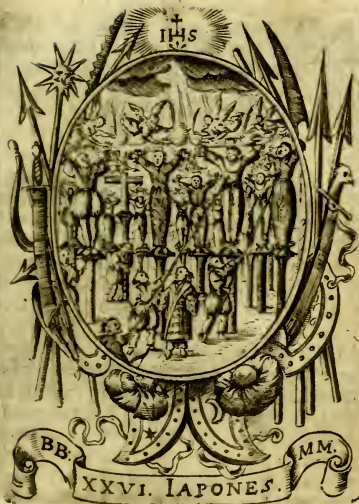 IHS
BB. MM.
XXVI. IAPONES.